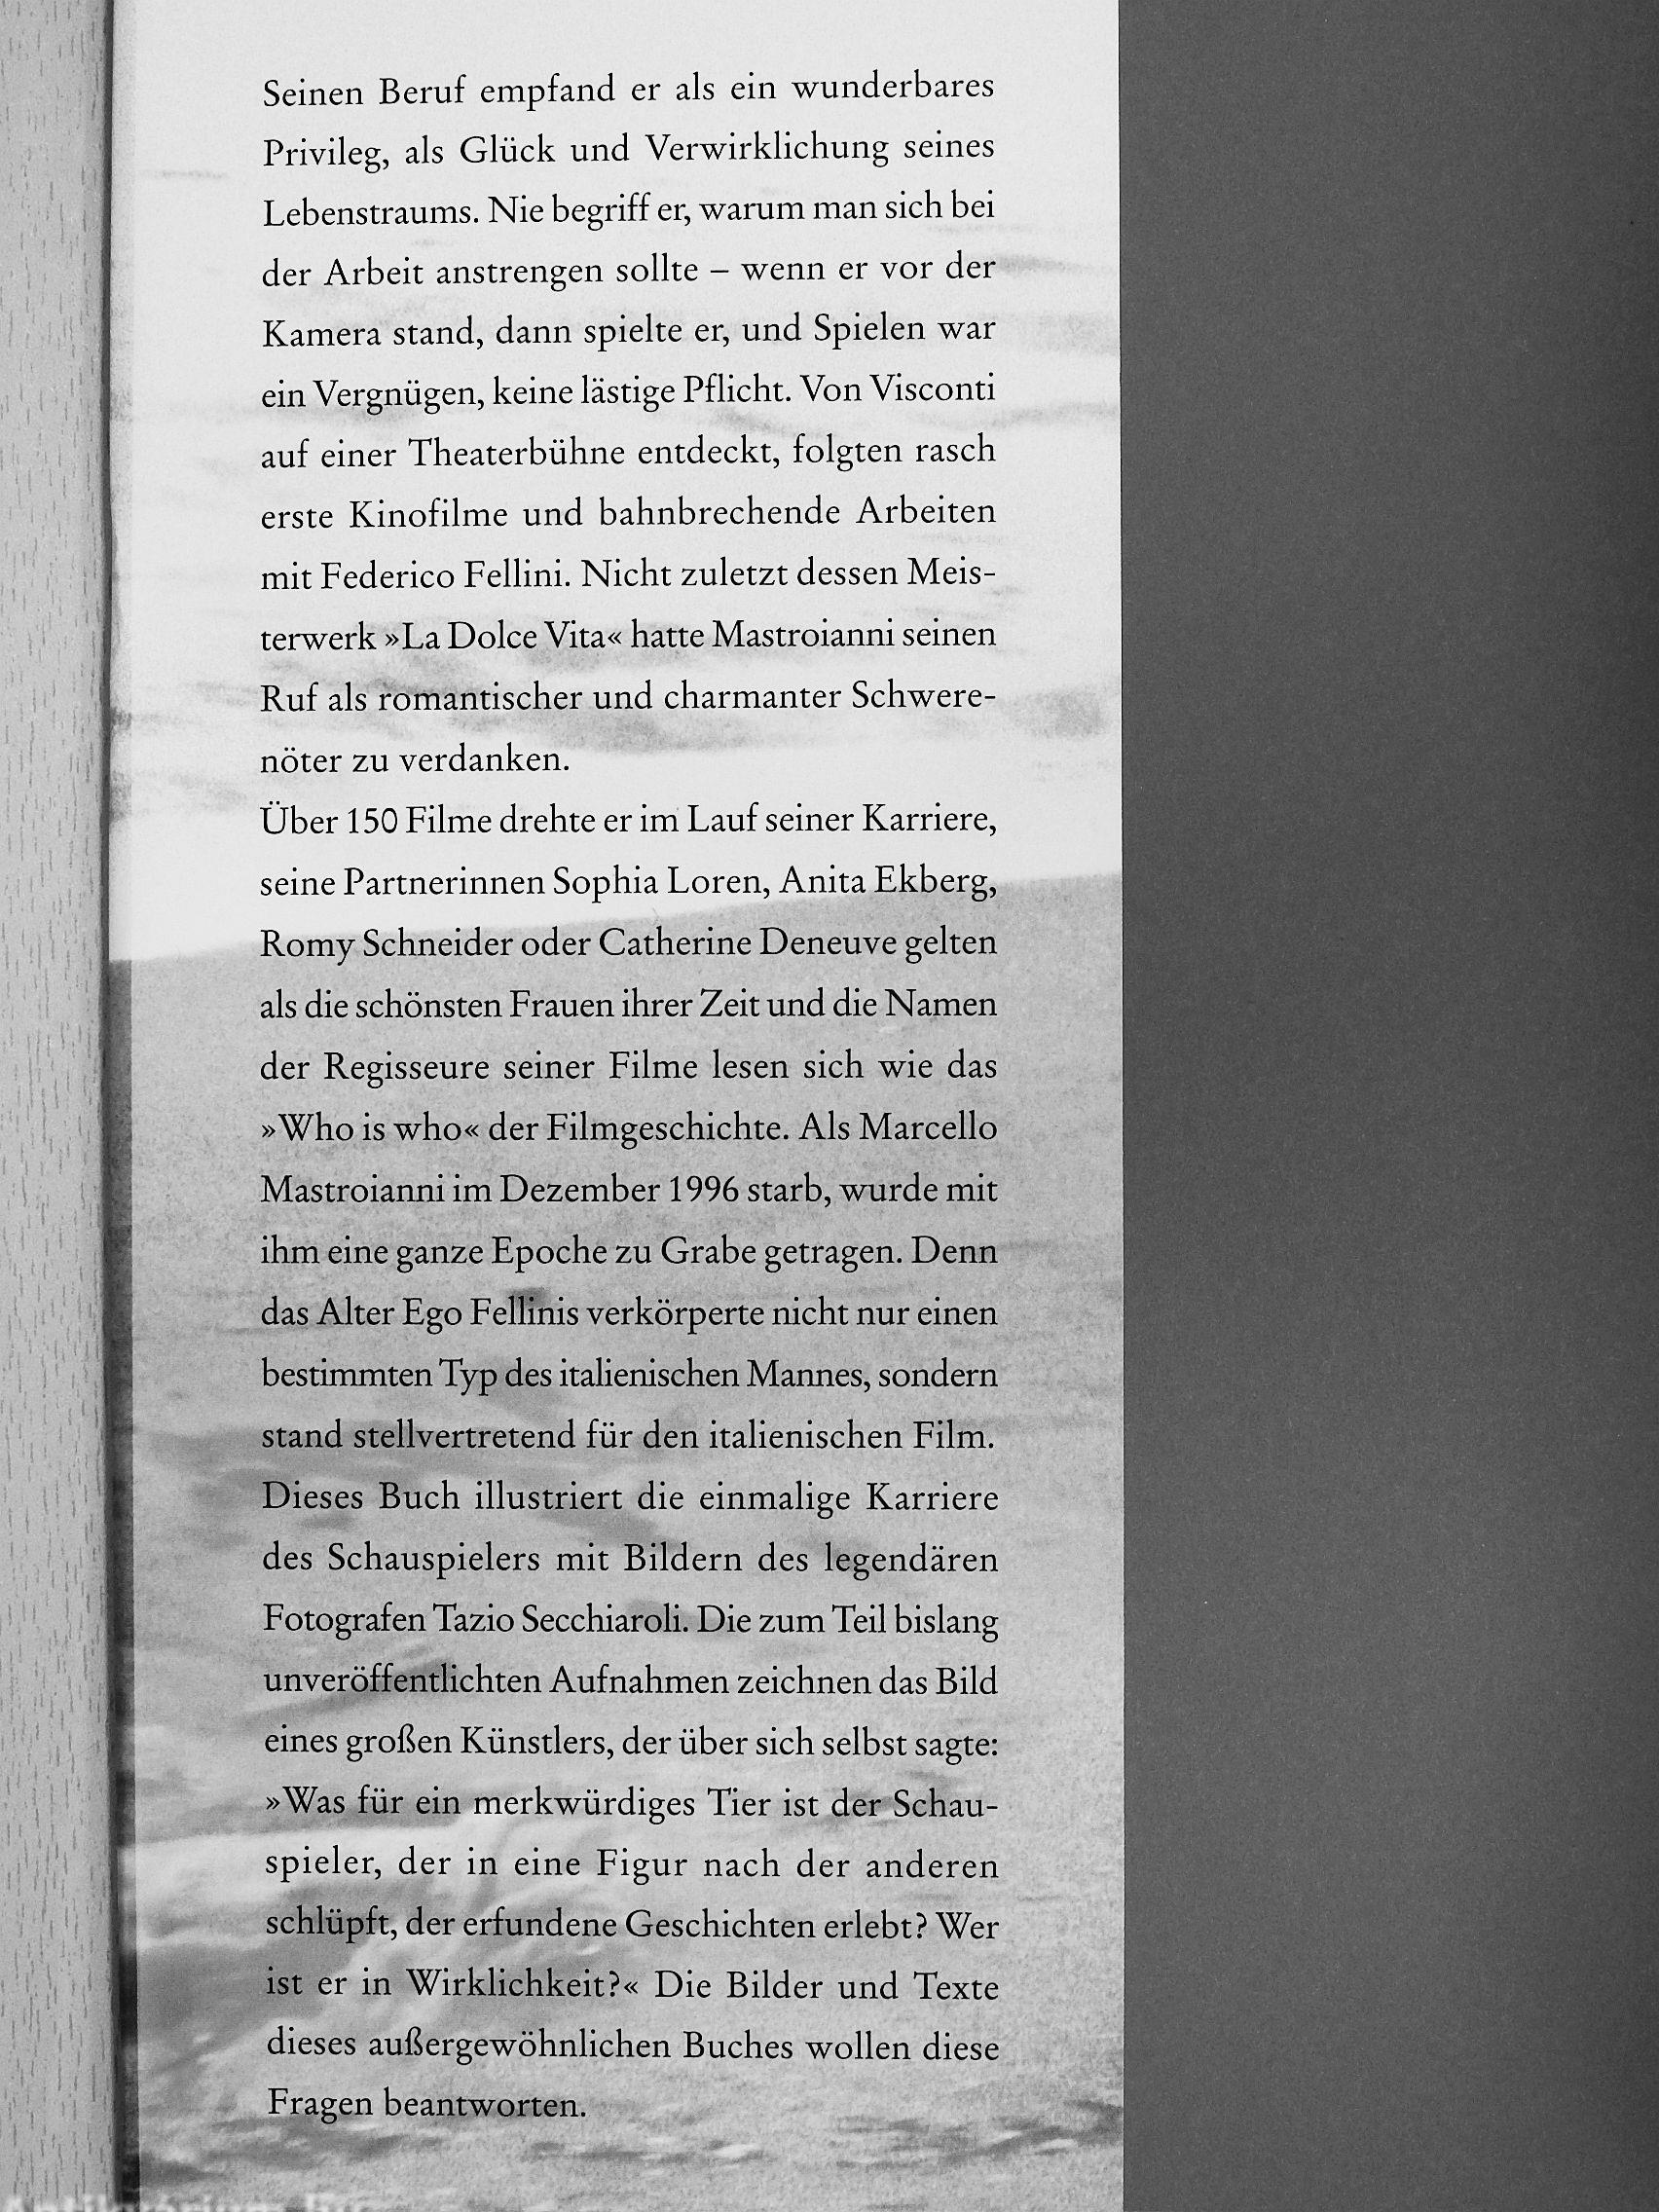 Seinen Beruf empfand er als ein wunderbares
Privileg, als Glück und Verwirklichung seines
Lebenstraums. Nie begriff er, warum man sich bei
der Arbeit anstrengen sollte – wenn er vor der
Kamera stand, dann spielte er, und Spielen war
ein Vergnügen, keine lästige Pflicht. Von Visconti
auf einer Theaterbühne entdeckt, folgten rasch
erste Kinofilme und bahnbrechende Arbeiten
mit Federico Fellini. Nicht zuletzt dessen Meis-
terwerk »La Dolce Vita« hatte Mastroianni seinen
Ruf als romantischer und charmanter Schwere-
nöter zu verdanken.
Über 150 Filme drehte er im Lauf seiner Karriere,
seine Partnerinnen Sophia Loren, Anita Ekberg,
Romy Schneider oder Catherine Deneuve gelten
als die schönsten Frauen ihrer Zeit und die Namen
der Regisseure seiner Filme lesen sich wie das
»Who is who« der Filmgeschichte. Als Marcello
Mastroianni im Dezember 1996 starb, wurde mit
ihm eine ganze Epoche zu Grabe getragen. Denn
das Alter Ego Fellinis verkörperte nicht nur einen
bestimmten Typ des italienischen Mannes, sondern
stand stellvertretend für den italienischen Film.
Dieses Buch illustriert die einmalige Karriere
des Schauspielers mit Bildern des legendären
Fotografen Tazio Secchiaroli. Die zum Teil bislang
unveröffentlichten Aufnahmen zeichnen das Bild
eines großen Künstlers, der über sich selbst sagte:
»Was für ein merkwürdiges Tier ist der Schau-
spieler, der in eine Figur nach der anderen
schlüpft, der erfundene Geschichten erlebt? Wer
ist er in Wirklichkeit?« Die Bilder und Texte
dieses außergewöhnlichen Buches wollen diese
Fragen beantworten.